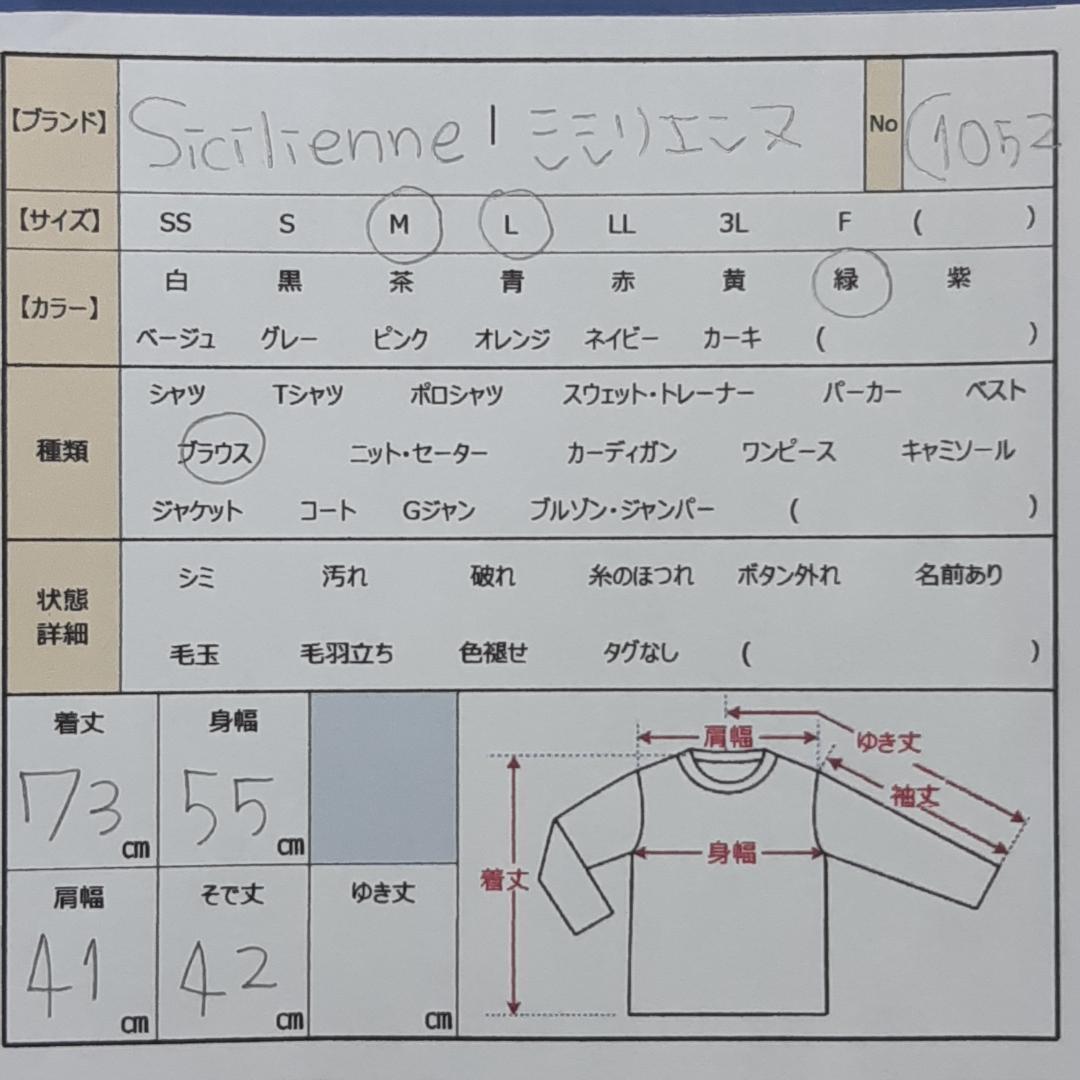 【ブランド】 Sicilienne | シシリエンヌ No (1052
【サイズ】 SS S M L LL 3L F ( )
【カラー】 白 黒 茶 青 赤 黄 緑 紫
ベージュ グレー ピンク オレンジ ネイビー カーキ ( )
種類 シャツ Tシャツ ポロシャツ スウェット・トレーナー パーカー ベスト
ブラウス ニット・セーター カーディガン ワンピース キャミソール
ジャケット コート Gジャン ブルゾン・ジャンパー ( )
状態
詳細
シミ 汚れ 破れ 糸のほつれ ボタン外れ 名前あり
毛玉 毛羽立ち 色褪せ タグなし ( )
着丈 身幅
73cm 55cm
肩幅 そで丈 ゆき丈
41cm 42cm cm
肩幅 ゆき丈
袖丈
身幅
着丈